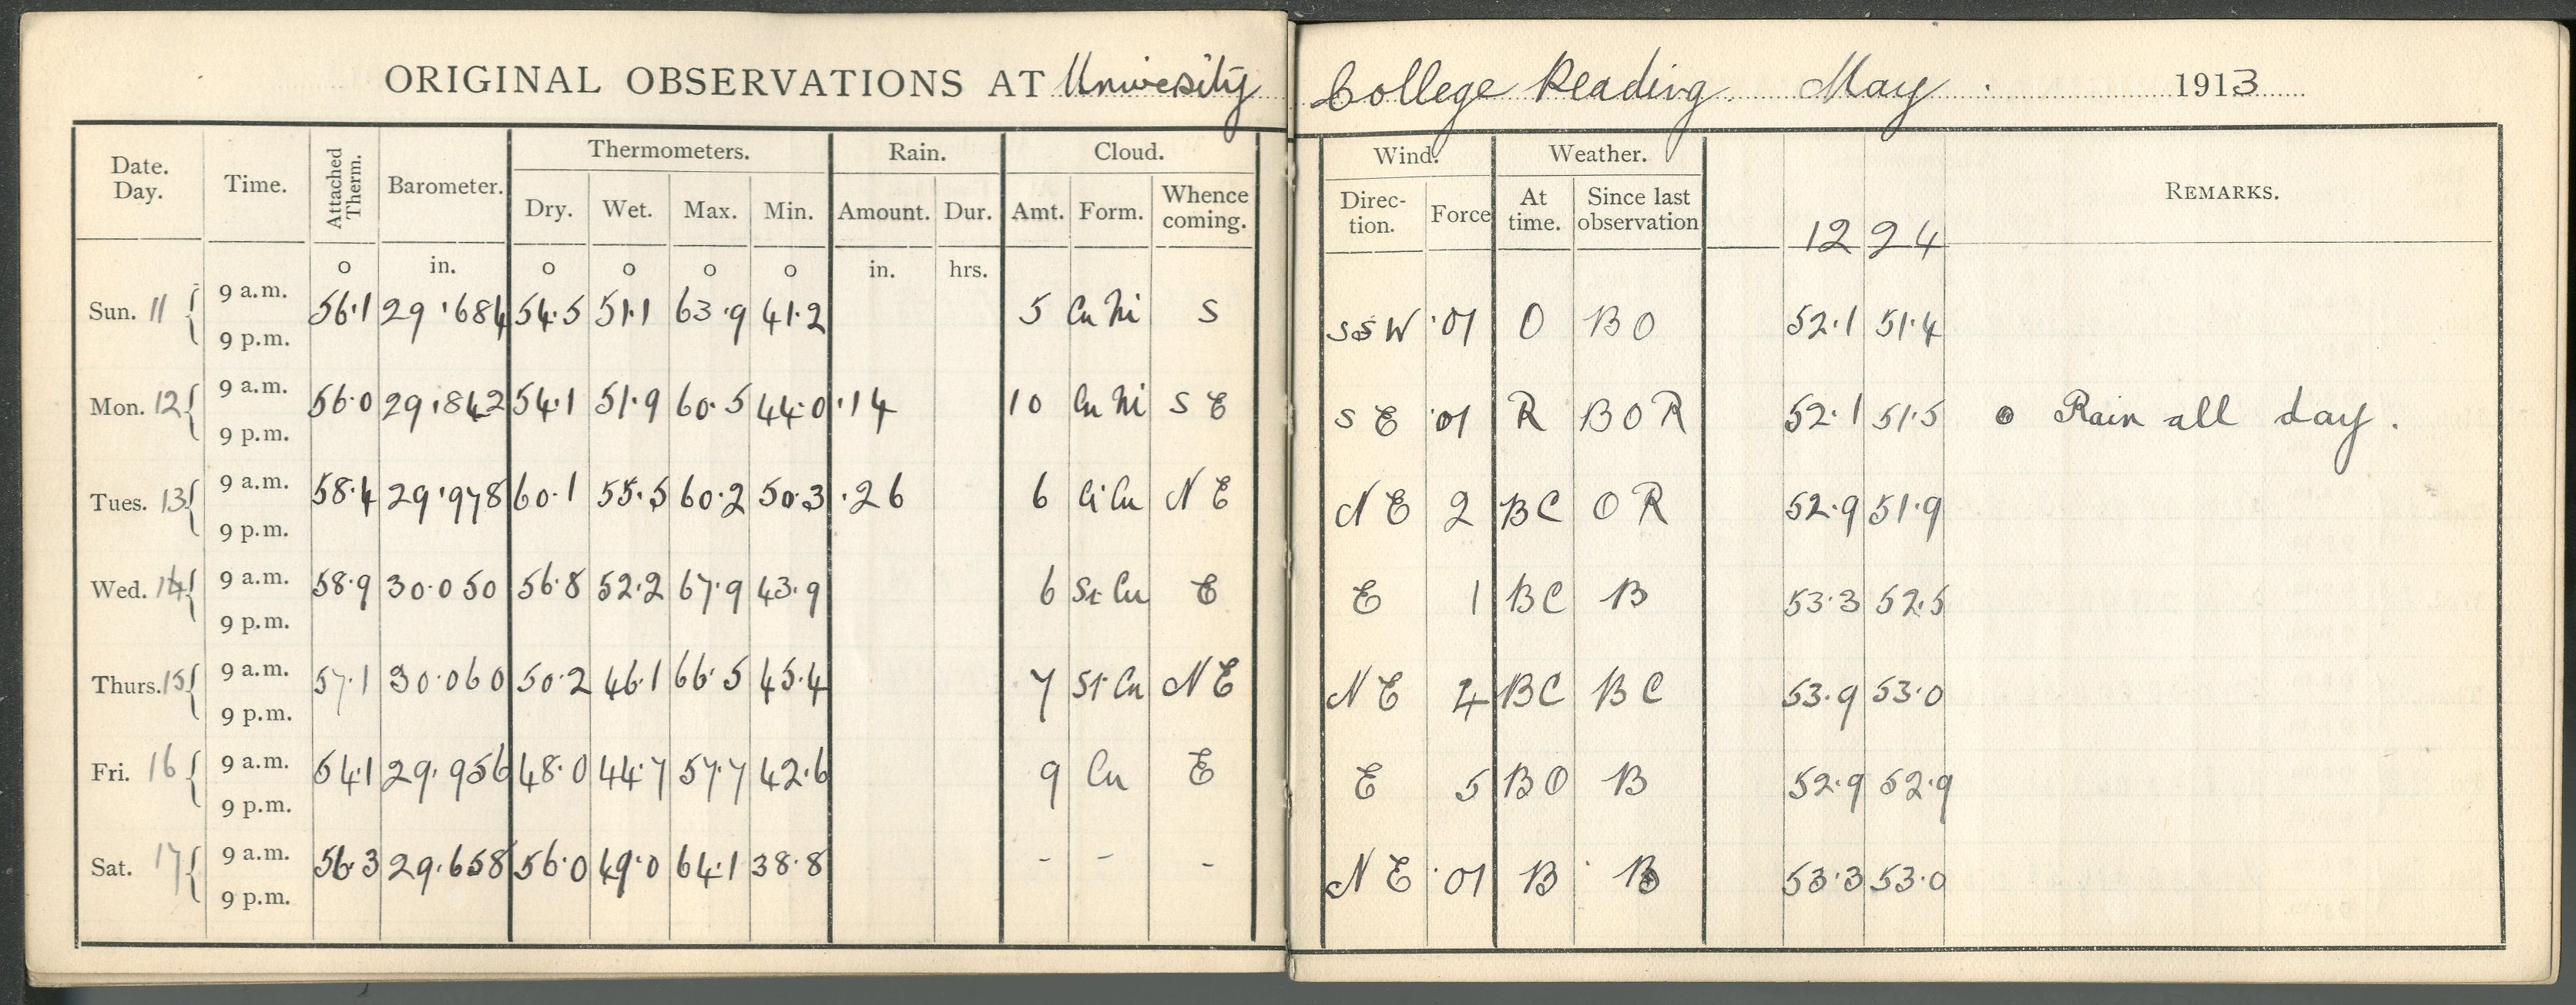 ORIGINAL OBSERVATIONS AT University College Reading. May 1913
Date. Day. Time. Attached Therm. Barometer. Thermometers. Rain. Cloud. Wind. Weather. REMARKS.
Dry. Wet. Max. Min. Amount. Dur. Amt. Form. Whence coming. Direc- tion. Force At time. Since last observation 12 24
o in. o o o o in. hrs.
Sun. 11 { 9 a.m. 56·1 29·684 54·5 51·1 63·9 41·2 5 Cu Ni S SSW ·01 O B O 52·1 51·4
9 p.m.
Mon. 12 { 9 a.m. 56·0 29·842 54·1 51·9 60·5 44·0 ·14 10 Cu Ni S E S E ·01 R B O R 52·1 51·5 Rain all day.
9 p.m.
Tues. 13 { 9 a.m. 58·4 29·978 60·1 55·5 60·2 50·3 ·26 6 Ci Cu N E N E 2 BC O R 52·9 51·9
9 p.m.
Wed. 14 { 9 a.m. 58·9 30·050 56·8 52·2 67·9 43·9 6 St Cu E E 1 BC B 53·3 52·5
9 p.m.
Thurs. 15 { 9 a.m. 57·1 30·060 50·2 46·1 66·5 45·4 7 St Cu N E N E 4 BC B C 53·9 53·0
9 p.m.
Fri. 16 { 9 a.m. 54·1 29·956 48·0 44·7 57·7 42·6 9 Cu E E 5 B O B 52·9 52·9
9 p.m.
Sat. 17 { 9 a.m. 56·3 29·658 56·0 49·0 64·1 38·8 - - - N E ·01 B B 53·3 53·0
9 p.m.